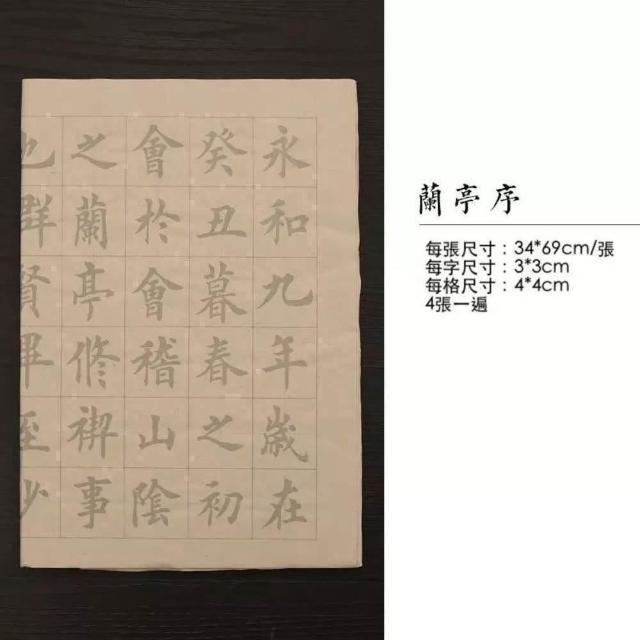 永和九年歲在
癸丑暮春之初
會於會稽山陰
之蘭亭修禊事
也群賢畢至少
蘭亭序
每張尺寸：34*69cm/張
每字尺寸：3*3cm
每格尺寸：4*4cm
4張一遍